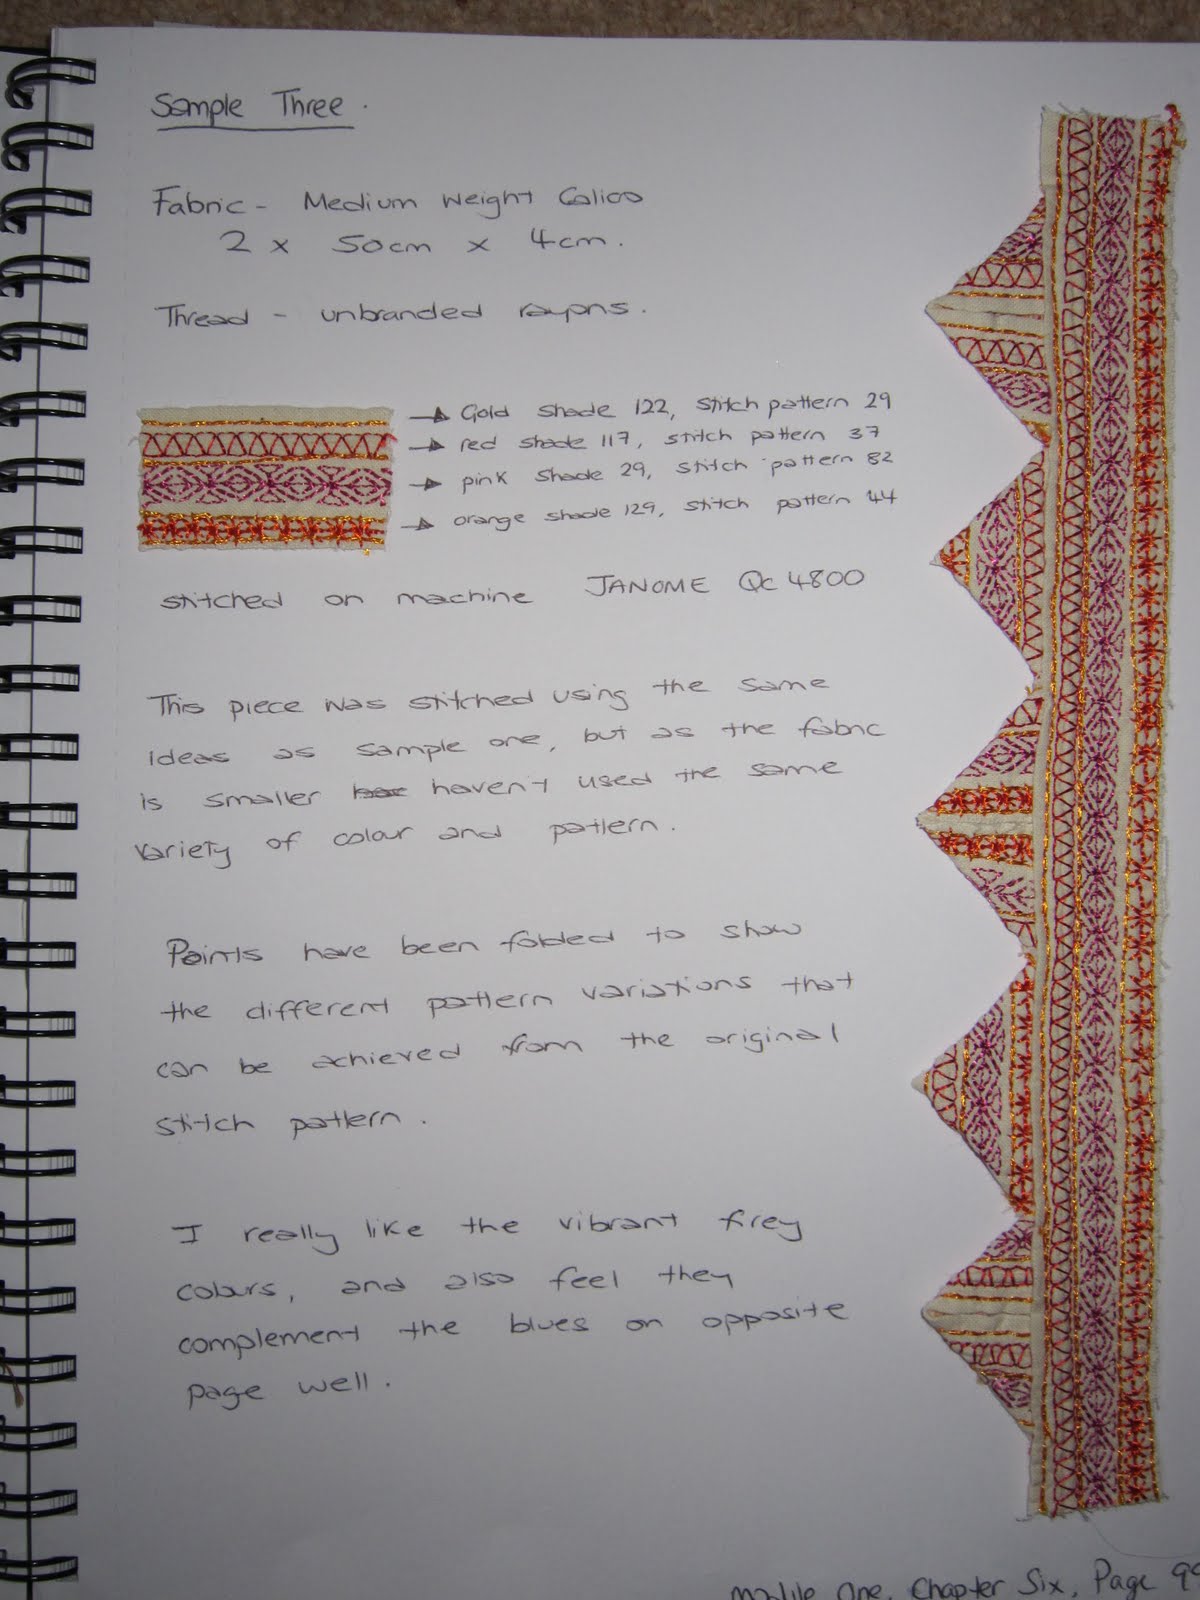 Sample Three.
Fabric - Medium Weight Calico
2 x 50cm x 4cm.
Thread - unbranded rayons.
Gold shade 122, stitch pattern 29
red shade 117, stitch pattern 37
pink shade 29, stitch pattern 82
orange shade 129, stitch pattern 44
stitched on machine JANOME Qc 4800
This piece was stitched using the same
ideas as sample one, but as the fabric
is smaller haven't used the same
variety of colour and pattern.
Points have been folded to show
the different pattern variations that
can be achieved from the original
stitch pattern.
I really like the vibrant firey
colours, and also feel they
complement the blues on opposite
page well.
Module One, Chapter Six, Page 99